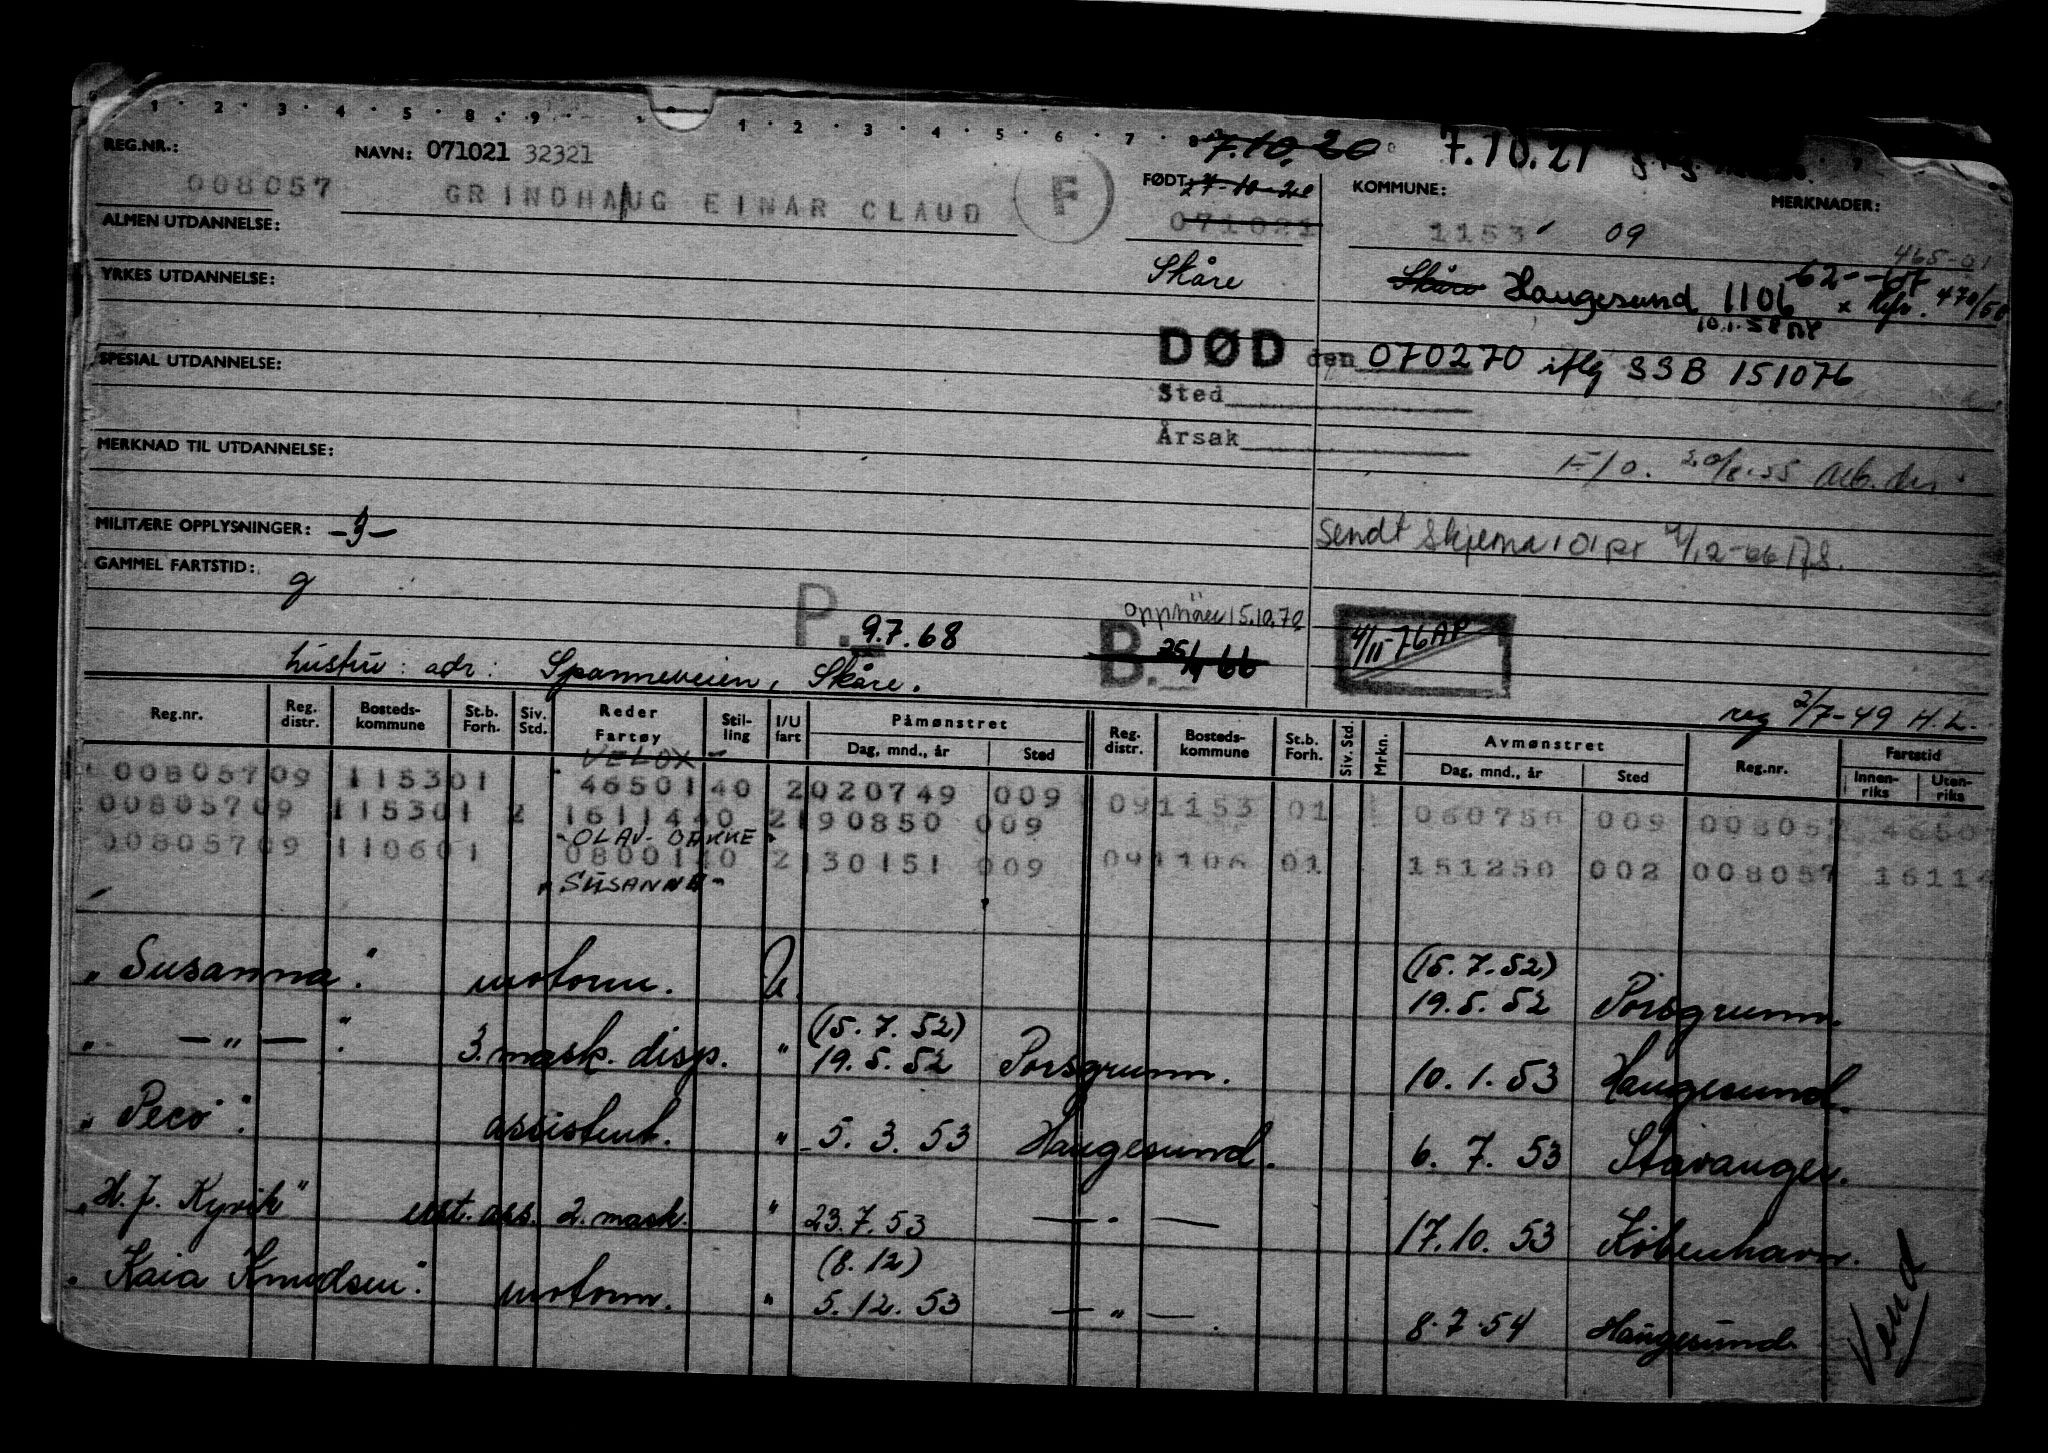 1 · 2 · 3 · 4 · 5 · 8 · 9 · 1 · 2 · 3 · 4 · 5 · 6 · 7 ·
7.10.20 7.10.21
REG.NR.: NAVN: 071021 32321 FØDT: 7-10-20 KOMMUNE: MERKNADER:
008057 GRINDHAUG EINAR CLAUD F 071021 1153 09
ALMEN UTDANNELSE:
465-01
YRKES UTDANNELSE: Skåre Skåre Haugesund 1106 470/58
10.1.58
DØD den 070270 iflg SSB 151076
SPESIAL UTDANNELSE:
Sted
Årsak
MERKNAD TIL UTDANNELSE:
F/O. 20/8.55
MILITÆRE OPPLYSNINGER:
Sendt skjema 101 pr
GAMMEL FARTSTID: g
15.10.70
P. 9.7.68 B. 25/4 66 4/11-76 AP
hustru: adr: Spanneveien, Skåre.
reg 2/7-49 H.L.
Reg.nr. Reg. distr. Bosteds-kommune St.b. Forh. Siv. Std. Reder Fartøy Stil-ling I/U fart Påmønstret Dag, mnd., år Sted Reg. distr. Bosteds-kommune St.b. Forh. Siv. Std. Mrkn. Avmønstret Dag, mnd., år Sted Reg.nr. Fartstid Innen-riks Uten-riks
VELOX
008057 09 1153 01 46501 40 2 020749 009 09 1153 01 060750 009 008057 4650
008057 09 1153 01 2 16114 40 2 190850 009
- OLAV BAKKE
008057 09 1106 01 08001 40 2 130151 009 09 1106 01 151250 002 008057 1611
"SUSANNA"
"Susanna". motorm. U. (15.7.52) 19.5.52 Porsgrunn.
" — " — ". 3. mask. disp. " (15.7.52) 19.5.52 Porsgrunn. 10.1.53 Haugesund.
"Peco". assistent. " 5.3.53 Haugesund. 6.7.53 Stavanger.
"H.J. Kyvik" ass. 2. mask. " 23.7.53 — " — 17.10.53 København.
"Kaia Knudsen". motorm. " (8.12) 5.12.53 — " — 8.7.54 Haugesund.
Vend